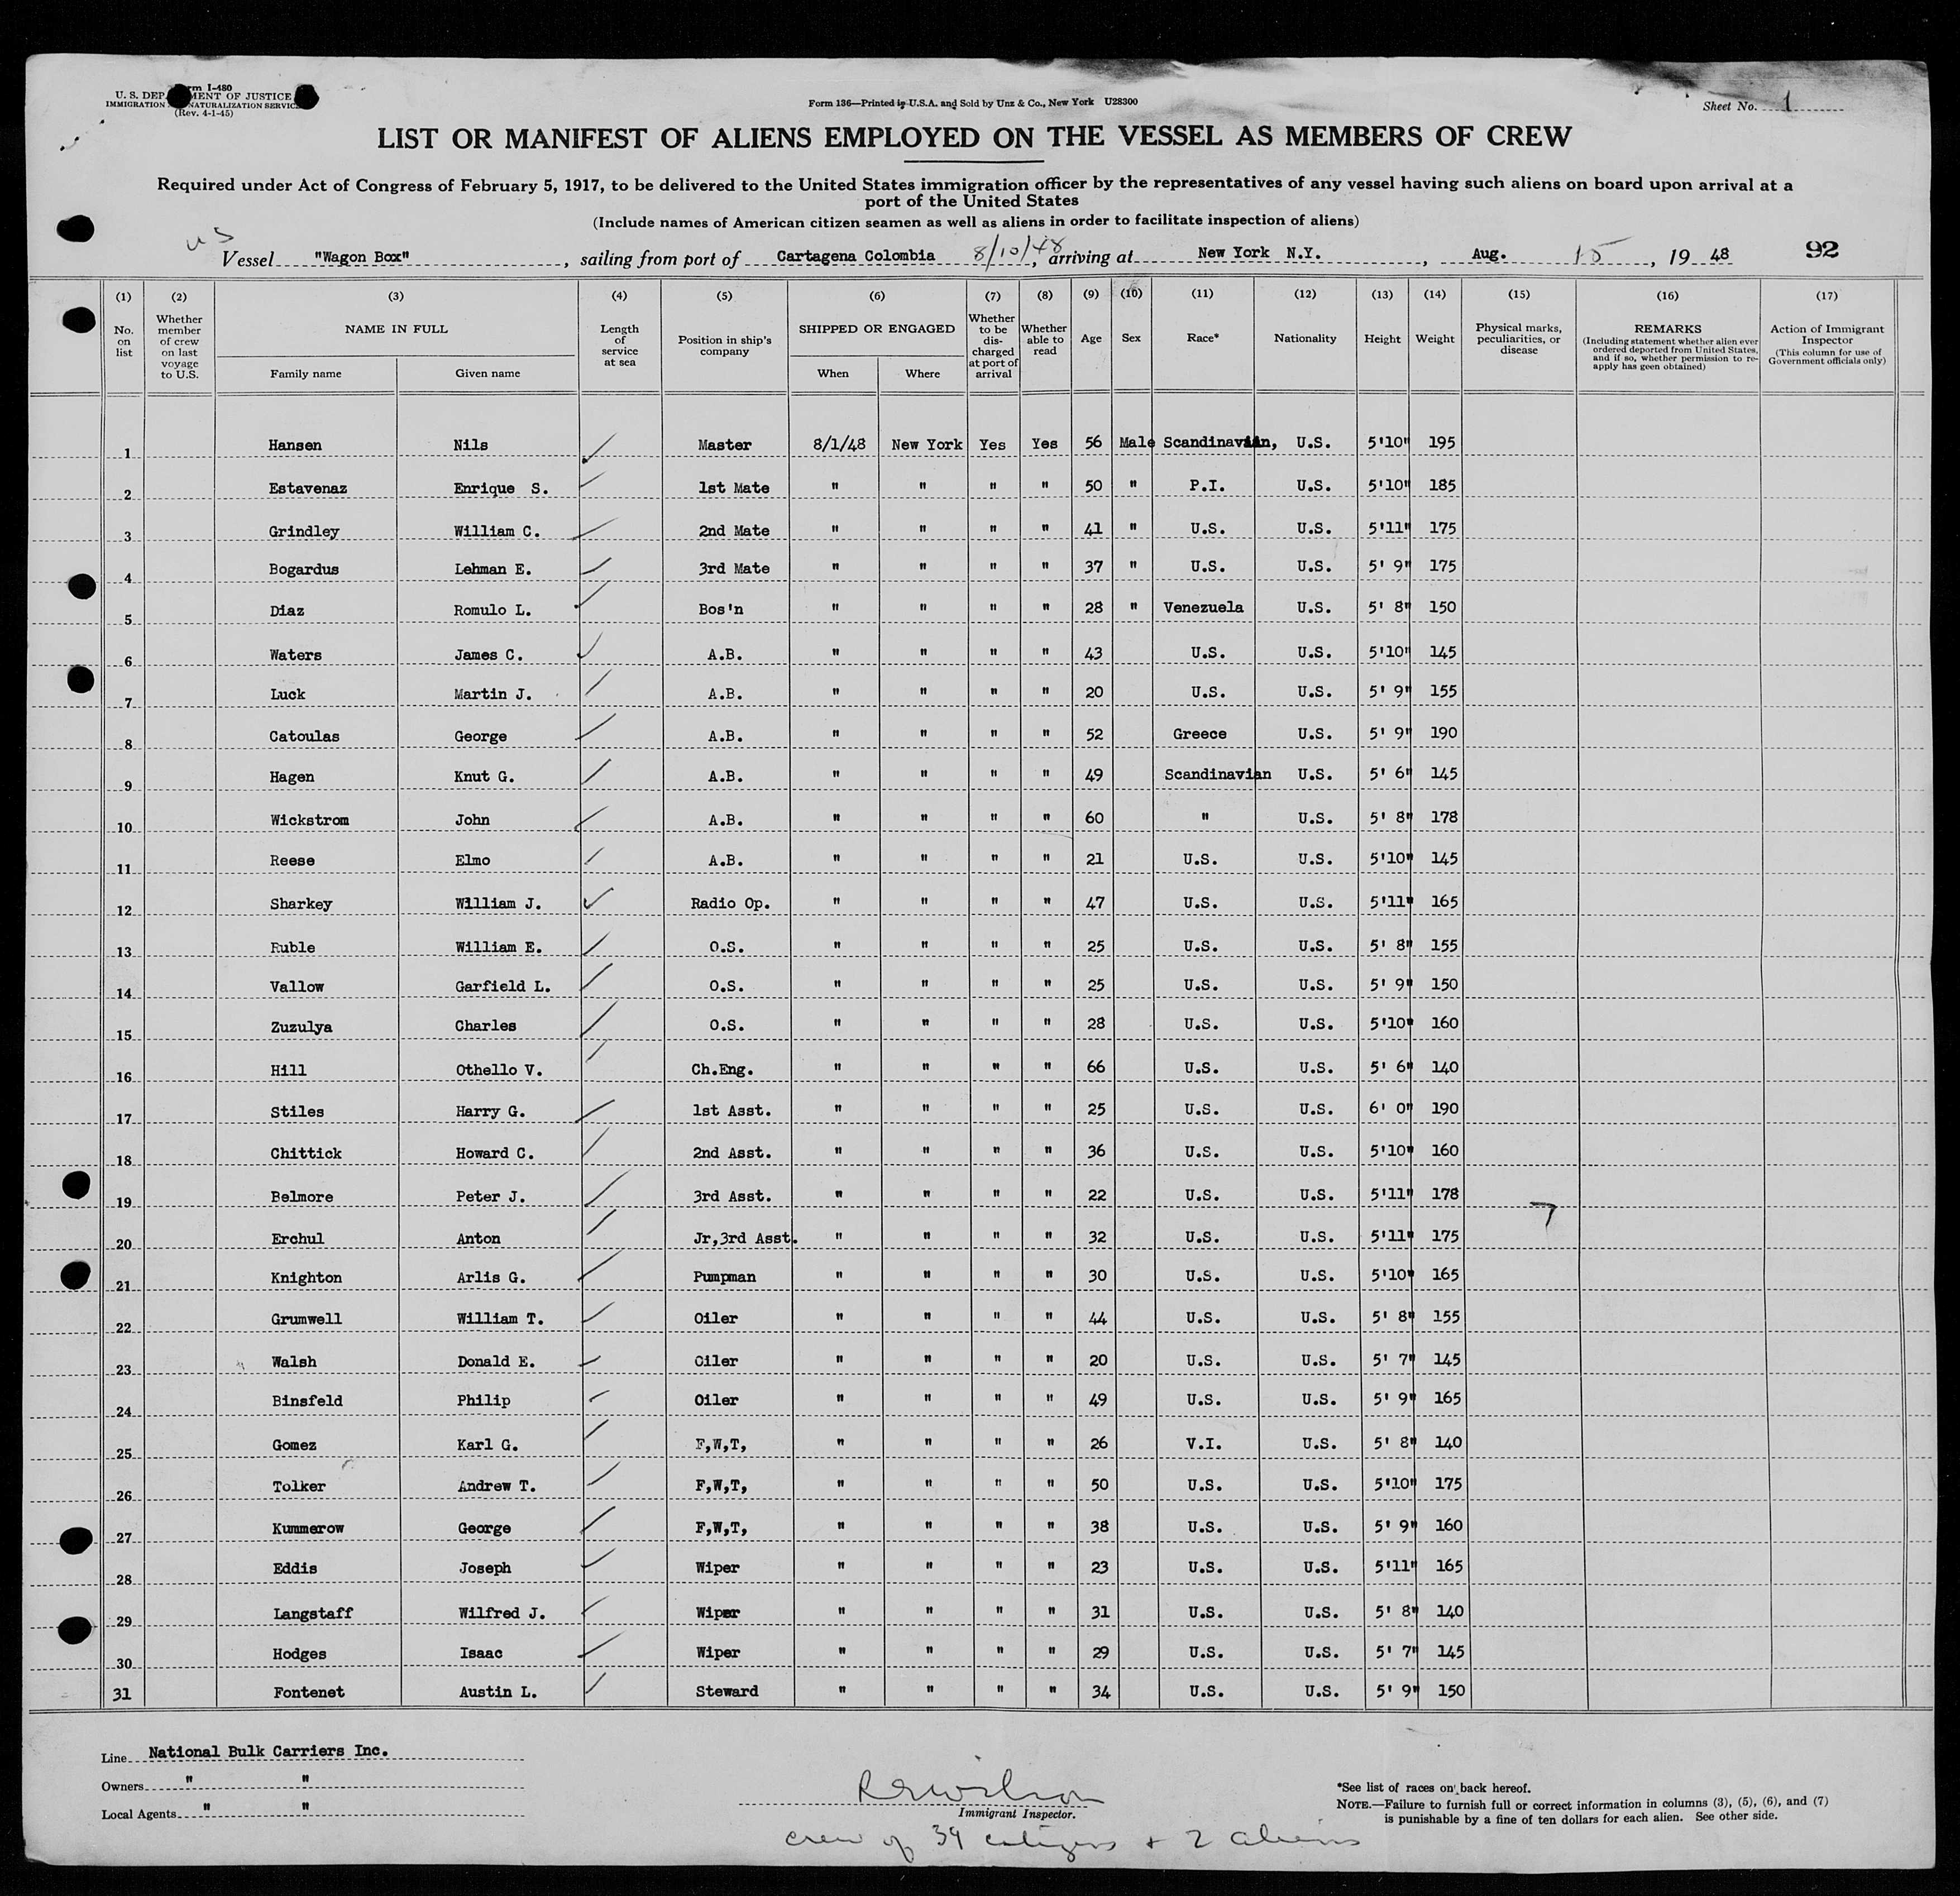 Form I-480
U. S. DEPARTMENT OF JUSTICE
IMMIGRATION NATURALIZATION SERVICE
(Rev. 4-1-45)
Form 136—Printed in U.S.A. and Sold by Unz & Co., New York U28300
Sheet No. 1
LIST OR MANIFEST OF ALIENS EMPLOYED ON THE VESSEL AS MEMBERS OF CREW
Required under Act of Congress of February 5, 1917, to be delivered to the United States immigration officer by the representatives of any vessel having such aliens on board upon arrival at a
port of the United States
(Include names of American citizen seamen as well as aliens in order to facilitate inspection of aliens)
US
Vessel "Wagon Box", sailing from port of Cartagena Colombia 8/10/48, arriving at New York N.Y., Aug. 15, 19 48 92
(1) No. on list (2) Whether member of crew on last voyage to U.S. (3) NAME IN FULL Family name Given name (4) Length of service at sea (5) Position in ship's company (6) SHIPPED OR ENGAGED When Where (7) Whether to be discharged at port of arrival (8) Whether able to read (9) Age (10) Sex (11) Race* (12) Nationality (13) Height (14) Weight (15) Physical marks, peculiarities, or disease (16) REMARKS (Including statement whether alien ever ordered deported from United States, and if so, whether permission to reapply has geen obtained) (17) Action of Immigrant Inspector (This column for use of Government officials only)
1 Hansen Nils Master 8/1/48 New York Yes Yes 56 Male Scandinavian, U.S. 5'10" 195
2 Estavenaz Enrique S. 1st Mate " " " " 50 " P.I. U.S. 5'10" 185
3 Grindley William C. 2nd Mate " " " " 41 " U.S. U.S. 5'11" 175
4 Bogardus Lehman E. 3rd Mate " " " " 37 " U.S. U.S. 5' 9" 175
5 Diaz Romulo L. Bos'n " " " " 28 " Venezuela U.S. 5' 8" 150
6 Waters James C. A.B. " " " " 43 U.S. U.S. 5'10" 145
7 Luck Martin J. A.B. " " " " 20 U.S. U.S. 5' 9" 155
8 Catoulas George A.B. " " " " 52 Greece U.S. 5' 9" 190
9 Hagen Knut G. A.B. " " " " 49 Scandinavian U.S. 5' 6" 145
10 Wickstrom John A.B. " " " " 60 " U.S. 5' 8" 178
11 Reese Elmo A.B. " " " " 21 U.S. U.S. 5'10" 145
12 Sharkey William J. Radio Op. " " " " 47 U.S. U.S. 5'11" 165
13 Ruble William E. O.S. " " " " 25 U.S. U.S. 5' 8" 155
14 Vallow Garfield L. O.S. " " " " 25 U.S. U.S. 5' 9" 150
15 Zuzulya Charles O.S. " " " " 28 U.S. U.S. 5'10" 160
16 Hill Othello V. Ch.Eng. " " " " 66 U.S. U.S. 5' 6" 140
17 Stiles Harry G. 1st Asst. " " " " 25 U.S. U.S. 6' 0" 190
18 Chittick Howard C. 2nd Asst. " " " " 36 U.S. U.S. 5'10" 160
19 Belmore Peter J. 3rd Asst. " " " " 22 U.S. U.S. 5'11" 178
20 Erchul Anton Jr,3rd Asst. " " " " 32 U.S. U.S. 5'11" 175
21 Knighton Arlis G. Pumpman " " " " 30 U.S. U.S. 5'10" 165
22 Grumwell William T. Oiler " " " " 44 U.S. U.S. 5' 8" 155
23 Walsh Donald E. Oiler " " " " 20 U.S. U.S. 5' 7" 145
24 Binsfeld Philip Oiler " " " " 49 U.S. U.S. 5' 9" 165
25 Gomez Karl G. F,W,T, " " " " 26 V.I. U.S. 5' 8" 140
26 Tolker Andrew T. F,W,T, " " " " 50 U.S. U.S. 5'10" 175
27 Kummerow George F,W,T, " " " " 38 U.S. U.S. 5' 9" 160
28 Eddis Joseph Wiper " " " " 23 U.S. U.S. 5'11" 165
29 Langstaff Wilfred J. Wiper " " " " 31 U.S. U.S. 5' 8" 140
30 Hodges Isaac Wiper " " " " 29 U.S. U.S. 5' 7" 145
31 Fontenet Austin L. Steward " " " " 34 U.S. U.S. 5' 9" 150
Line National Bulk Carriers Inc.
Owners " "
Local Agents " "
REWilson
Immigrant Inspector.
crew of 34 citizens + 2 aliens
*See list of races on back hereof.
NOTE.—Failure to furnish full or correct information in columns (3), (5), (6), and (7)
is punishable by a fine of ten dollars for each alien. See other side.